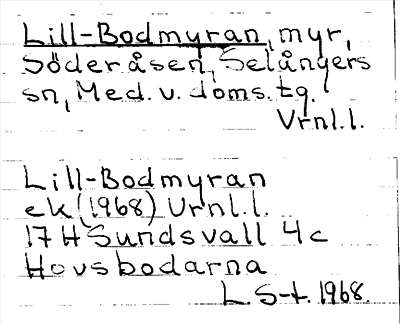 Lill-Bodmyran, myr,
Söderåsen, Selångers
sn, Med. v. doms. tg.
Vrnl.l.
Lill-Bodmyran
ek (1968) Vrnl.l.
17 H Sundsvall 4c
Hovsbodarna
L. S-t. 1968.